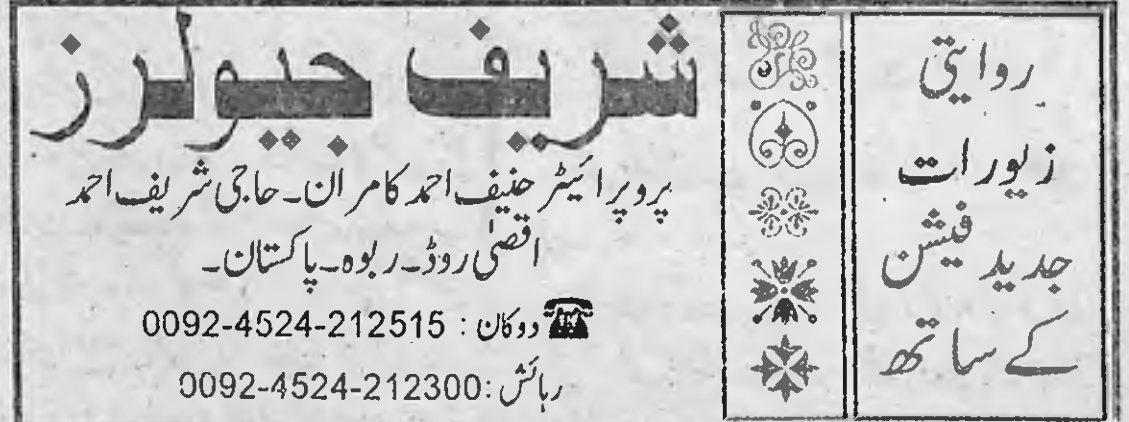 روایتی
زیورات
جدید فیشن
کے ساتھ
شریف جیولرز
پروپرائیٹر حنیف احمد کامران۔ حاجی شریف احمد
اقصٰی روڈ۔ ربوہ۔ پاکستان۔
دوکان : 0092-4524-212515
رہائش : 0092-4524-212300